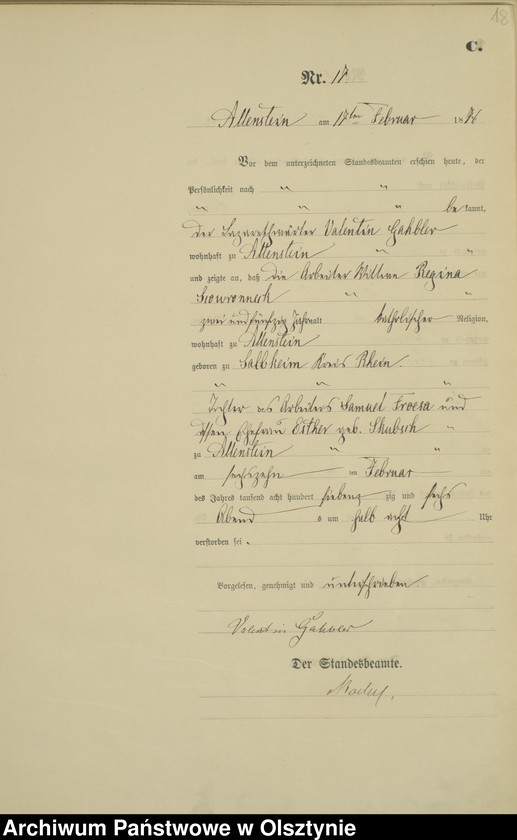 18
C.
Nr. 17
Allenstein am 17ten Februar 1876
Vor dem unterzeichneten Standesbeamten erschien heute, der
Persönlichkeit nach
be kannt,
der Lazarethwärter Valentin Gahbler
wohnhaft zu Allenstein
und zeigte an, daß die Arbeiter Wittwe Regina
zwei und fünfzig Jahre alt katholischer Religion,
wohnhaft zu Allenstein
geboren zu Salbkeim Kreis Rhein.
Tochter des Arbeiters Samuel und
dessen Ehefrau Esther geb. Skubsch
zu Allenstein
am sechszehn ten Februar
des Jahres tausend acht hundert siebenzig und sechs
Abend s um halb acht Uhr
verstorben sei.
Vorgelesen, genehmigt und unterschrieben
Valentin Gahbler
Der Standesbeamte.
Archiwum Państwowe w Olsztynie